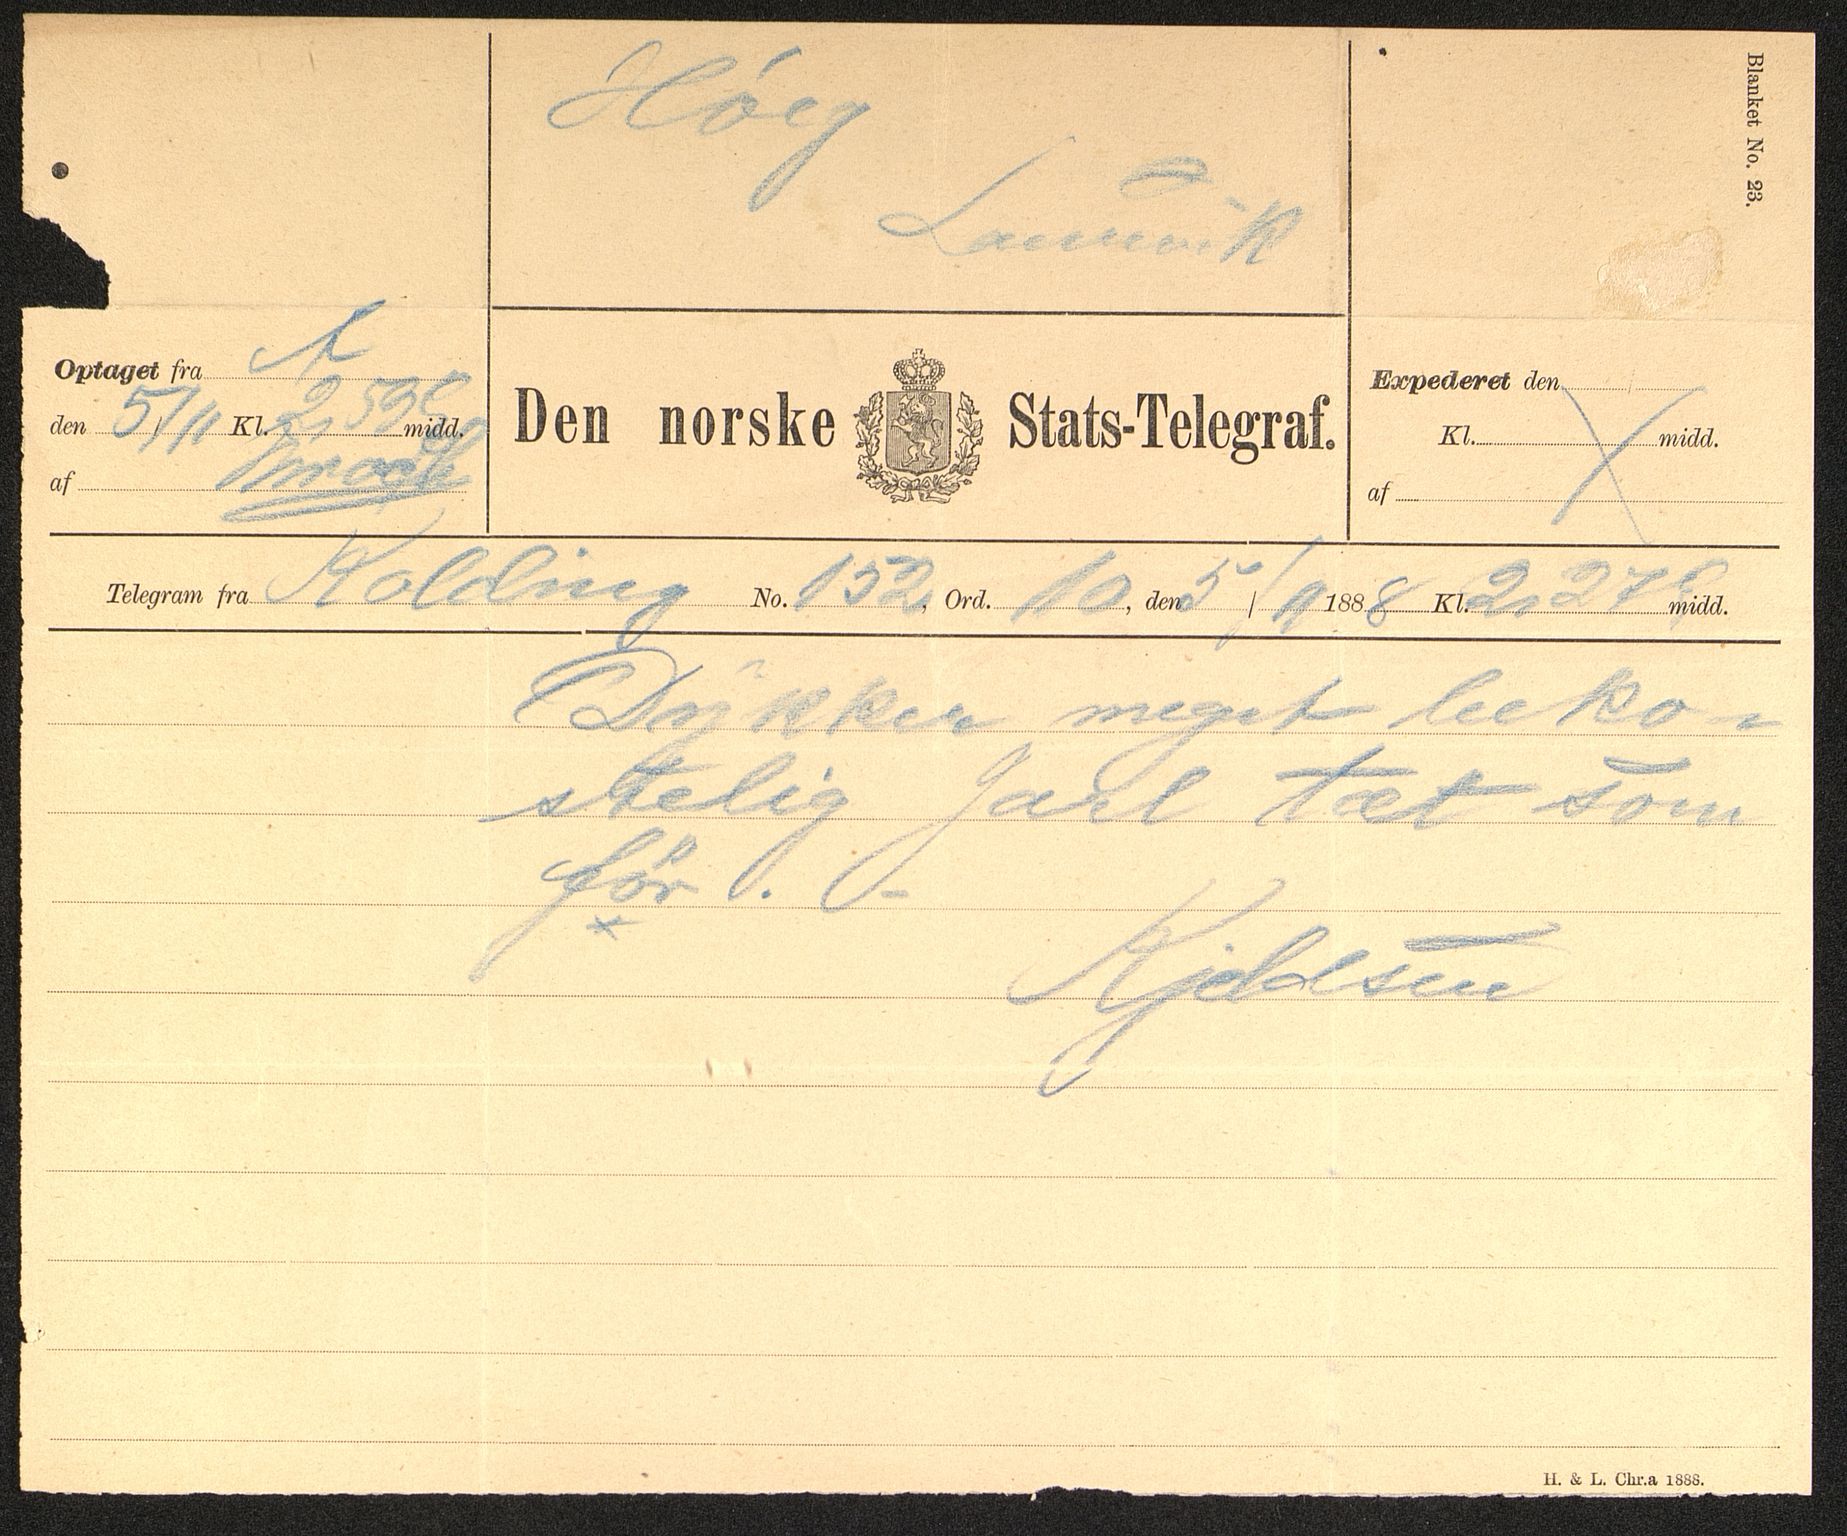 Høeg
Laurvik
Blanket No. 23.
Optaget fra A
den 5/11 Kl. 2,53 E midd.
af
Den norske Stats-Telegraf.
Expederet den
Kl. midd.
af
Telegram fra Kolding No. 152, Ord. 10, den 5/11 1888 Kl. 2,27 E midd.
Dykker meget beko-
stelig Jarl tæt som
før . -
Kjeldsen
H. & L. Chr.a 1888.